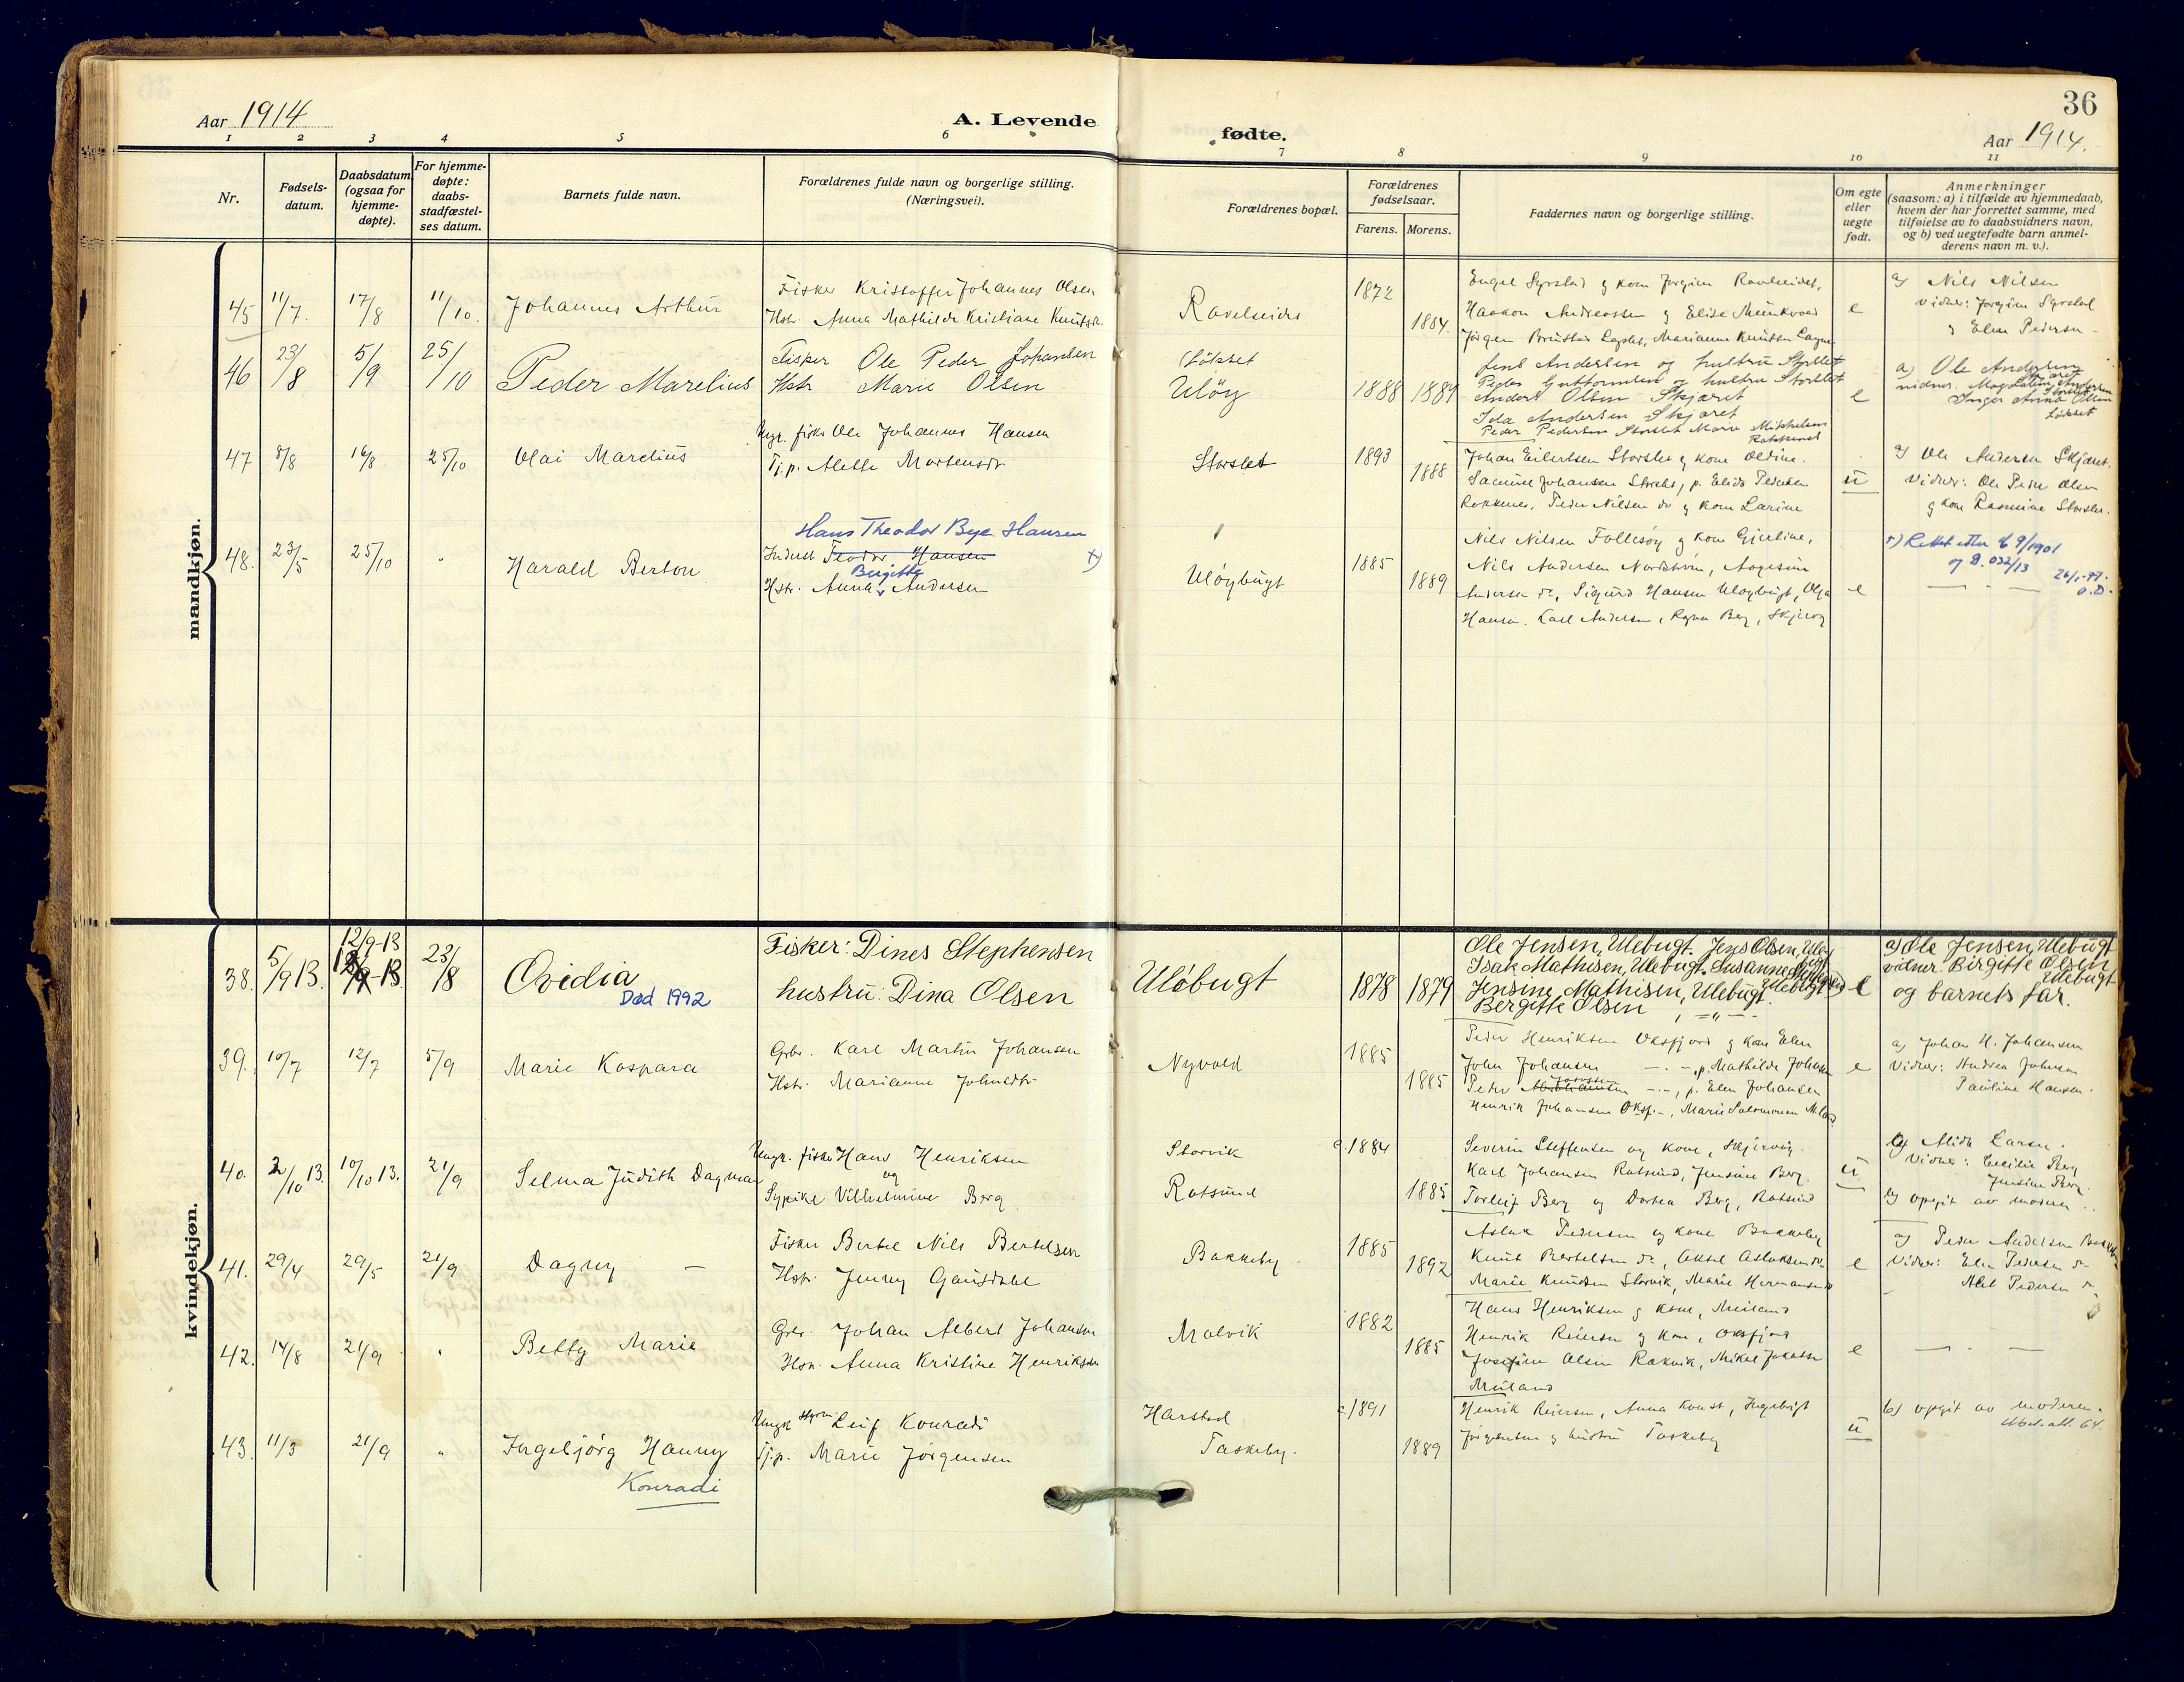 36
Aar 1914
A. Levende
fødte.
Aar 1914.
1 2 3 4 5 6 7 8 9 10 11
Nr.
Fødsels-
datum.
Daabsdatum
(ogsaa for
hjemme-
døpte).
For hjemme-
døpte:
daabs-
stadfæstel-
ses datum.
Barnets fulde navn.
Forældrenes fulde navn og borgerlige stilling.
(Næringsvei).
Forældrenes bopæl.
Forældrenes
fødselsaar.
Farens. Morens.
Faddernes navn og borgerlige stilling.
Om egte
eller
uegte
født.
Anmerkninger
(saasom: a) i tilfælde av hjemmedaab,
hvem der har forrettet samme, med
tilføielse av to daabsvidners navn,
og b) ved uegtefødte barn anmel-
derens navn m. v.).
mandkjøn.
45 11/7. 17/8 11/10. Johannes Arthur
Fisker Kristoffer Johannes Olsen
Hstr. Anna Mathilde Kristiane Knutsdr.
Ravelseidet
1872
1884.
Haakon Andreassen g Elise
e
a) Nils Nilsen
vidner: Jørgine
g Elen Pedersen
46 23/8 5/9 25/10 Peder Marelius
Fisker Ole Peder Johansen
Hstr Marie Olsen
Uløy
1888 1889
Jens Andersen og hustru Storslet
Peder Guttormsen og hustru Storslet
Anders Olsen Skjæret
Ida Andersen Skjæret
Peder Pedersen Storslet Marie Mikkelsen
e
a) Ole Andersen
Skjæret
vidner. Magdalena Andersen
Inger Anna Olsen
47 8/8 16/8 25/10 Olai Marelius
Ungk. fisker Ole Johannes Hansen
Tj.p. Alette Mortensdr
Storslet
1893
1888
Johan Eilertsen Storslet g kone Oldine.
Samuel Johansen Storslet, p. Elida Pedersen
Rokkenes, Peder Nilsen do g kone Larine
u
a) Ole Andersen Skjæret.
Vidner: Ole Peder Olsen
g kone Rasmine Storslet.
48. 23/5 25/10 " Harald Berton
Hans Theodor Bye Hansen
Inderst Teodor Hansen x)
Birgitte
Hstr. Anna Andersen
Uløybugt
1885
1889
Nils Nilsen Follesøy g kone Gjertine,
Nils Andersen Nordstrøm,
Andersen do, Sigurd Hansen Uløybugt, Olga
Hansen. Karl Andersen, Ragna Berg, Skjervøy
e
x) Rettet etter
kvindekjøn.
38. 5/9 13. 12/9-13 23/8 Ovidia
Død 1992
Fisker: Dines Stephensen
hustru: Dina Olsen
Uløbugt
1878 1879
Ole Jensen, Ulebugt. Jens Olsen, Uløy
Isak Mathisen, Ulebugt. Susanne
Jensine Mathisen, Ulebugt. Ulebugt
Bergitte Olsen
e
a) Ole Jensen, Ulebugt
vidner. Birgitte Olsen
Ulebugt
og barnets far.
39. 10/7 12/7 5/9 Marie Kaspara
Grbr. Karl Martin Johansen
Hstr. Marianne Johnsdtr
Nyvold
1885
1885
Peder Henriksen Oksfjord g kone Elen
John Johansen — . — p. Mathilde Johansen
Peder — . —, p. Elen Johansen
Henrik Johansen Oksf.—, Marie Salomonsen
e
a) Johan H. Johansen
Vidner: Andrea Johnsen
Pauline Hansen.
40. 2/10 13. 10/10 13. 21/9 Selma Judith Dagmar
Ungk. fisker Hans Henriksen
og
Sypike Vilhelmine Berg
Storvik
Rotsund
1884
1885
Severin Steffensen og kone, Skjervøy.
Karl Johansen Rotsund, Jensine Berg.
Torleif Berg og Dortea Berg, Rotsund
u
a) Alida Larsen.
Vidner: Cecilie Berg
Jensine Berg.
b) opgit av moderen.
41. 29/4 29/5 21/9 Dagny —
Fisker Bertel Nils Bertelsen
Hstr. Jenny Gausdahl
Bakkeby
1885
1892
Aslak Pedersen og kone Bakkeby
Knut Bertelsen do, Aksel Aslaksen do.
Marie Knudsen Storvik, Marie Hermansen do
e
a) Peder Andersen Bakkeby
Vidner: Elen Pedersen do
Pedersen do
42. 14/8 21/9 " Betty Marie
Grbr. Johan Albert Johansen
Hstr. Anna Kristine Henriksdtr
Malvik
1882
1885
Hans Henriksen g kone, Meiland
Henrik Reiersen g kone, Oksfjord
Josefine Olsen Rakvik, Mikal Johansen
Meiland
e
— . —
43. 11/3 21/9 " Ingebjørg Hanny
Konradi
Ungk styrm. Leif Konradi
Tj.p. Marie Jørgensen
Harstad
Taskeby.
1891
1889
Henrik Reiersen, Anna Konst, Ingebrigt
Jørgensen g hustru Taskeby
u
b) opgit av moderen.